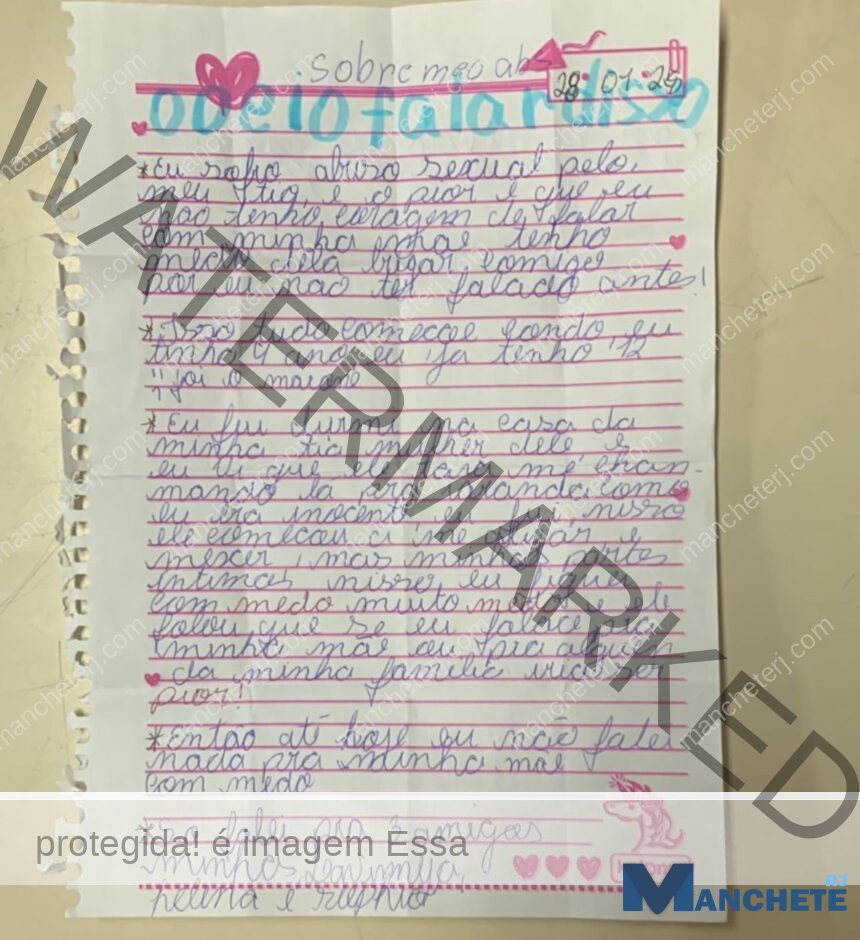 sobre meo abs
28 01 25
odeio falar disso
*Eu sofro abuso sexual pelo,
meu tio, e o pior é que eu
não tenho coragem de falar
com minha mae tenho
medo dela brigar comigo
por eu não ter falado antes!
*Isso tudo começoe condo, eu
tinha 9 ano eu ja tenho 12
foi o
*Eu fui durmi na casa da
minha tia mulher dele, e
eu vi que ele tava me chan-
mando la pra varanda como
eu era inocente eu fui, nisso
ele começou a me e
mexer, mas minhas partes
intimas nisso eu fiquei
com medo muito medo e ele
falou que se eu falace pra
minha mãe ou pra alguen
da minha familia iria ser
pior!
*Então até hoje eu não falei
nada pra minha mae
com medo
*So falei pra 3 amigas
minhas
e
protegida! é imagem Essa
WATERMARKED
MANCHETE RJ
mancheterj.com